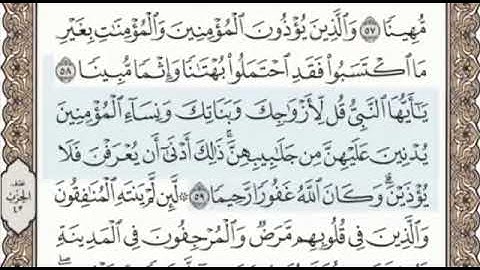 مُّهِينٗا ٥٧ وَٱلَّذِينَ يُؤۡذُونَ ٱلۡمُؤۡمِنِينَ وَٱلۡمُؤۡمِنَٰتِ بِغَيۡرِ
مَا ٱكۡتَسَبُواْ فَقَدِ ٱحۡتَمَلُواْ بُهۡتَٰنٗا وَإِثۡمٗا مُّبِينٗا ٥٨
يَٰٓأَيُّهَا ٱلنَّبِيُّ قُل لِّأَزۡوَٰجِكَ وَبَنَاتِكَ وَنِسَآءِ ٱلۡمُؤۡمِنِينَ
يُدۡنِينَ عَلَيۡهِنَّ مِن جَلَٰبِيبِهِنَّۚ ذَٰلِكَ أَدۡنَىٰٓ أَن يُعۡرَفۡنَ فَلَا
يُؤۡذَيۡنَۗ وَكَانَ ٱللَّهُ غَفُورٗا رَّحِيمٗا ٥٩ ۞ لَّئِن لَّمۡ يَنتَهِ ٱلۡمُنَٰفِقُونَ
وَٱلَّذِينَ فِي قُلُوبِهِم مَّرَضٞ وَٱلۡمُرۡجِفُونَ فِي ٱلۡمَدِينَةِ
نصف
الحزب
٤٣